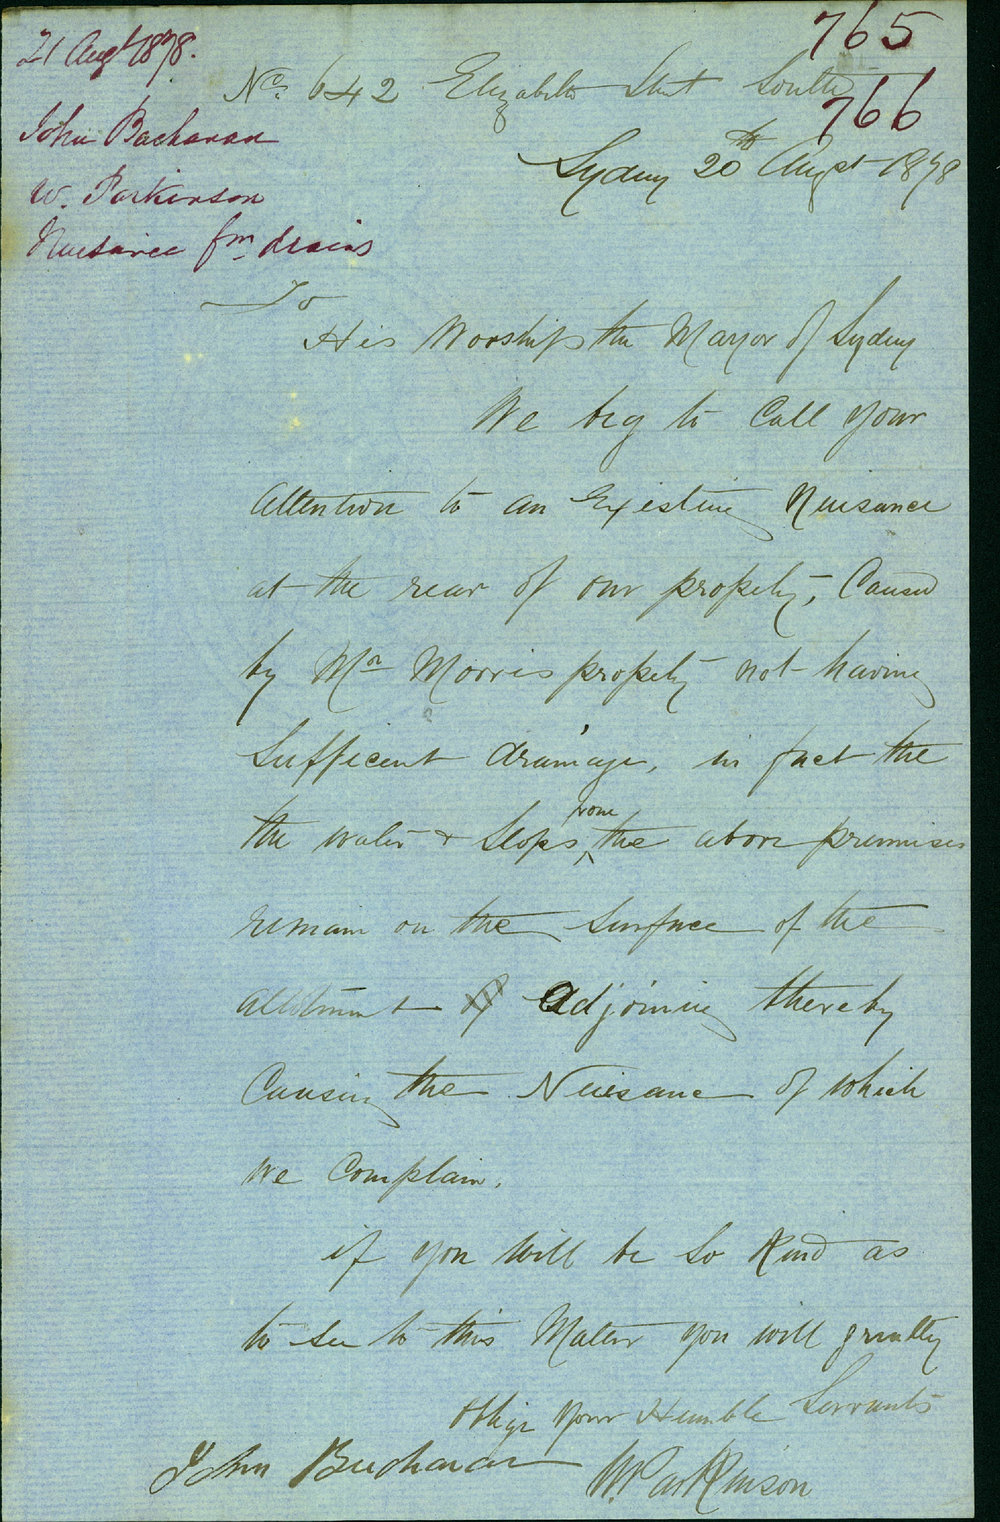 765
766
21 Augt 1878.
John Buchanan
W. Parkinson
Nuisance fm drains
No. 642 Elizabeth Street South
Sydney 20th Augst 1878
To
His Worship the Mayor of Sydney
We beg to Call your
Attention to an Existing Nuisance
at the rear of our propety, Caused
by Mr Morris propety not having
Sufficent drainage, in fact the
the water & Slops from the above premises
remain on the Surface of the
allotment adjoining thereby
Causing the Nuisance of which
We Complain.
if you will be So Kind as
to see to this Matter you will greatly
oblige your Humble Servants
John Buchanan W. Parkinson